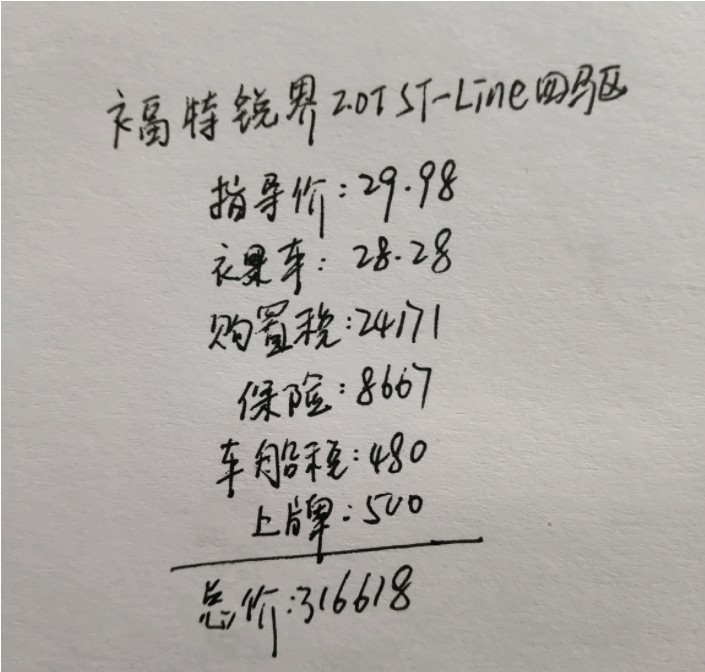 福特锐界2.0T ST-Line四驱
指导价:29.98
裸车:28.28
购置税:24171
保险:8667
车船税:480
上牌:500
总价:316618